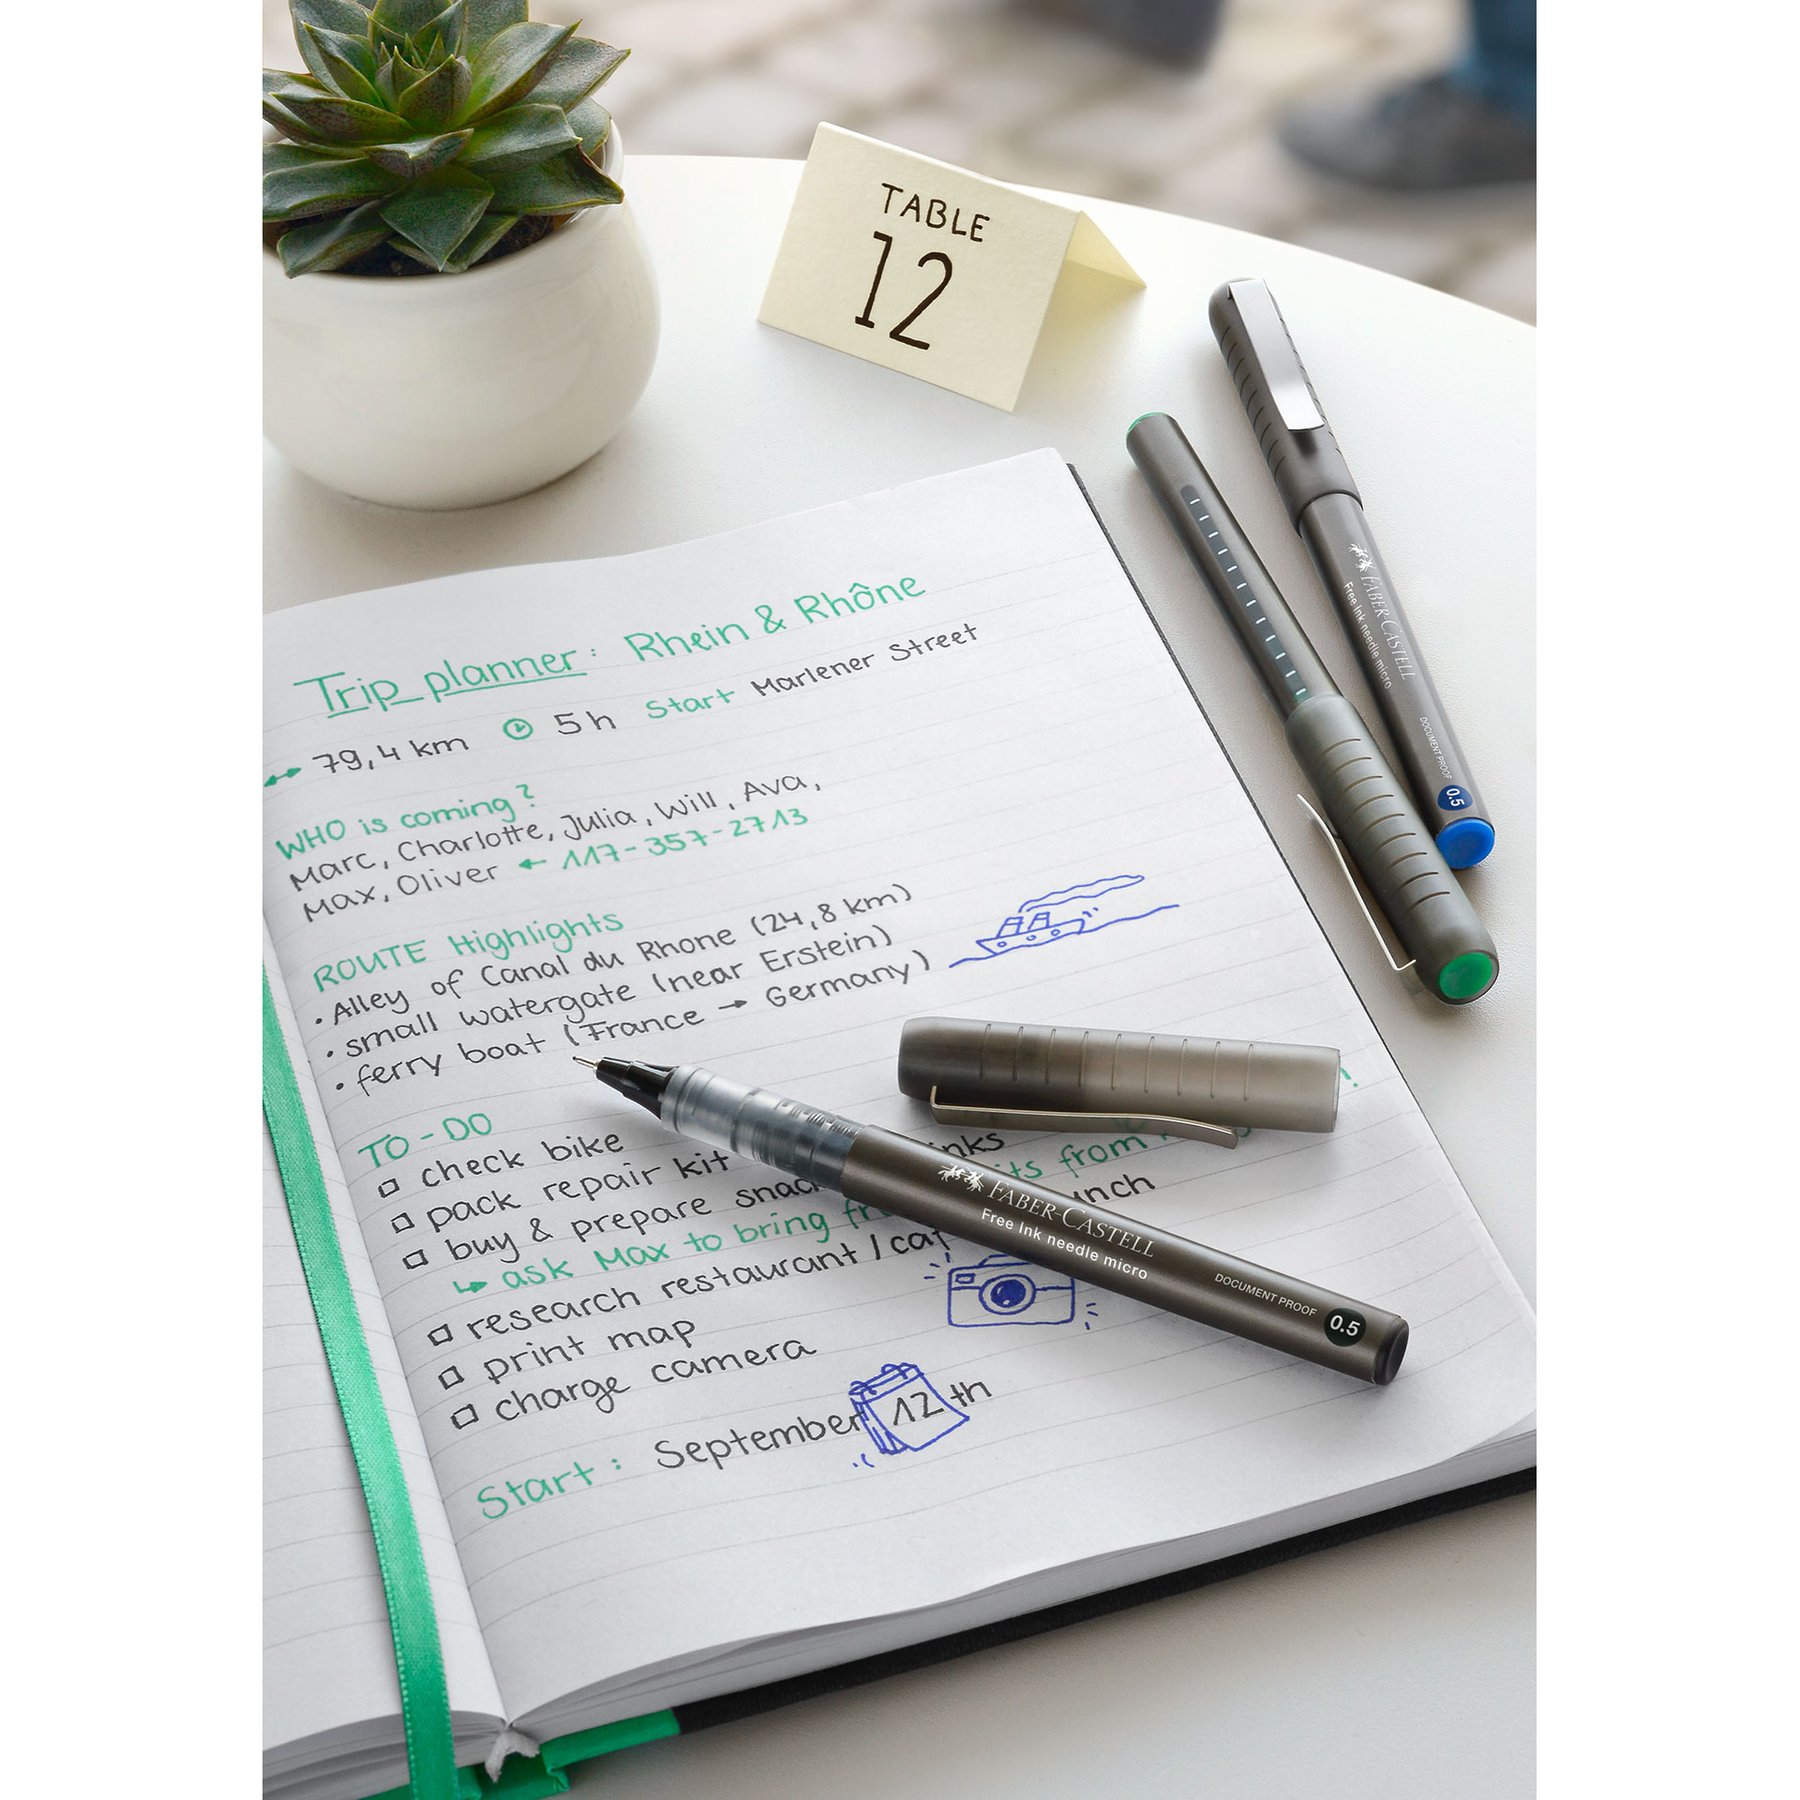 TABLE
12
FABER-CASTELL
Free Ink needle micro
DOCUMENT PROOF
0.5
Trip planner: Rhein & Rhône
↔ 79,4 km 5h Start Marlener Street
WHO is coming?
Marc, Charlotte, Julia, Will, Ava,
Max, Oliver ← 117-357-2713
ROUTE Highlights
• Alley of Canal du Rhone (24,8 km)
• small watergate (near Erstein)
• ferry boat (France → Germany)
TO-DO
check bike
pack repair kit
buy & prepare
↳ ask Max to bring
from
research restaurant /
print map
charge camera
Start: September 12th
FABER-CASTELL
Free Ink needle micro
DOCUMENT PROOF
0.5